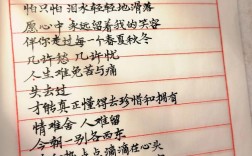 怕只怕 泪水轻轻地滑落
愿心中 永远留着我的笑容
伴你走过每一个春夏秋冬
几许愁 几许忧
人生难免苦与痛
失去过
才能真正懂得去珍惜和拥有
情难舍 人难留
今朝一别各西东
点点滴滴在心头